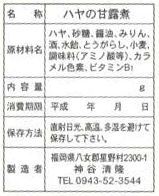 名称 ハヤの甘露煮
原材料名 ハヤ、砂糖、醤油、みりん、
酒、水飴、とうがらし、小麦、
調味料(アミノ酸等)、カラ
メル色素、ビタミンB1
内容量 g
消費期限 平成 年 月 日
保存方法 直射日光、高温、多湿を避けて
保存して下さい。
製造者 福岡県八女郡星野村2300-1
神谷清隆
TEL 0943-52-3544